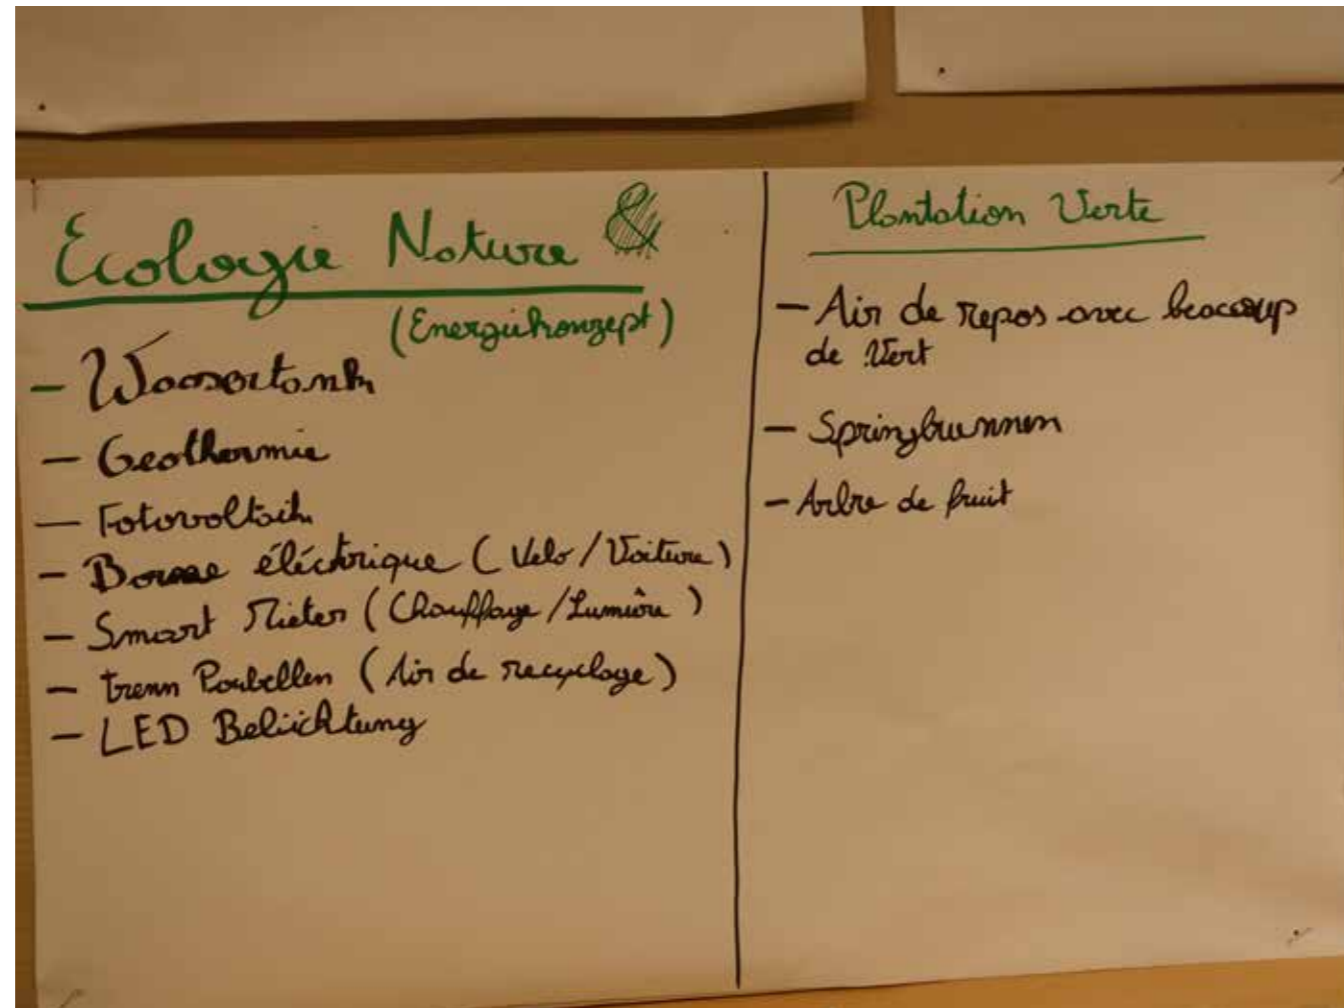 Ecologie Nature &
(Energiekonzept)
- Wassertank
- Geothermie
- Fotovoltaik
- Borne éléctrique (Velo / Voiture)
- Smart Mieter (Chauffage / Lumière)
- trenn Poubellen (Air de recyclage)
- LED Beliichtung
Plantation Verte
- Air de repos avec beacoup
de Vert
- Springbrunnen
- Arbre de fruit